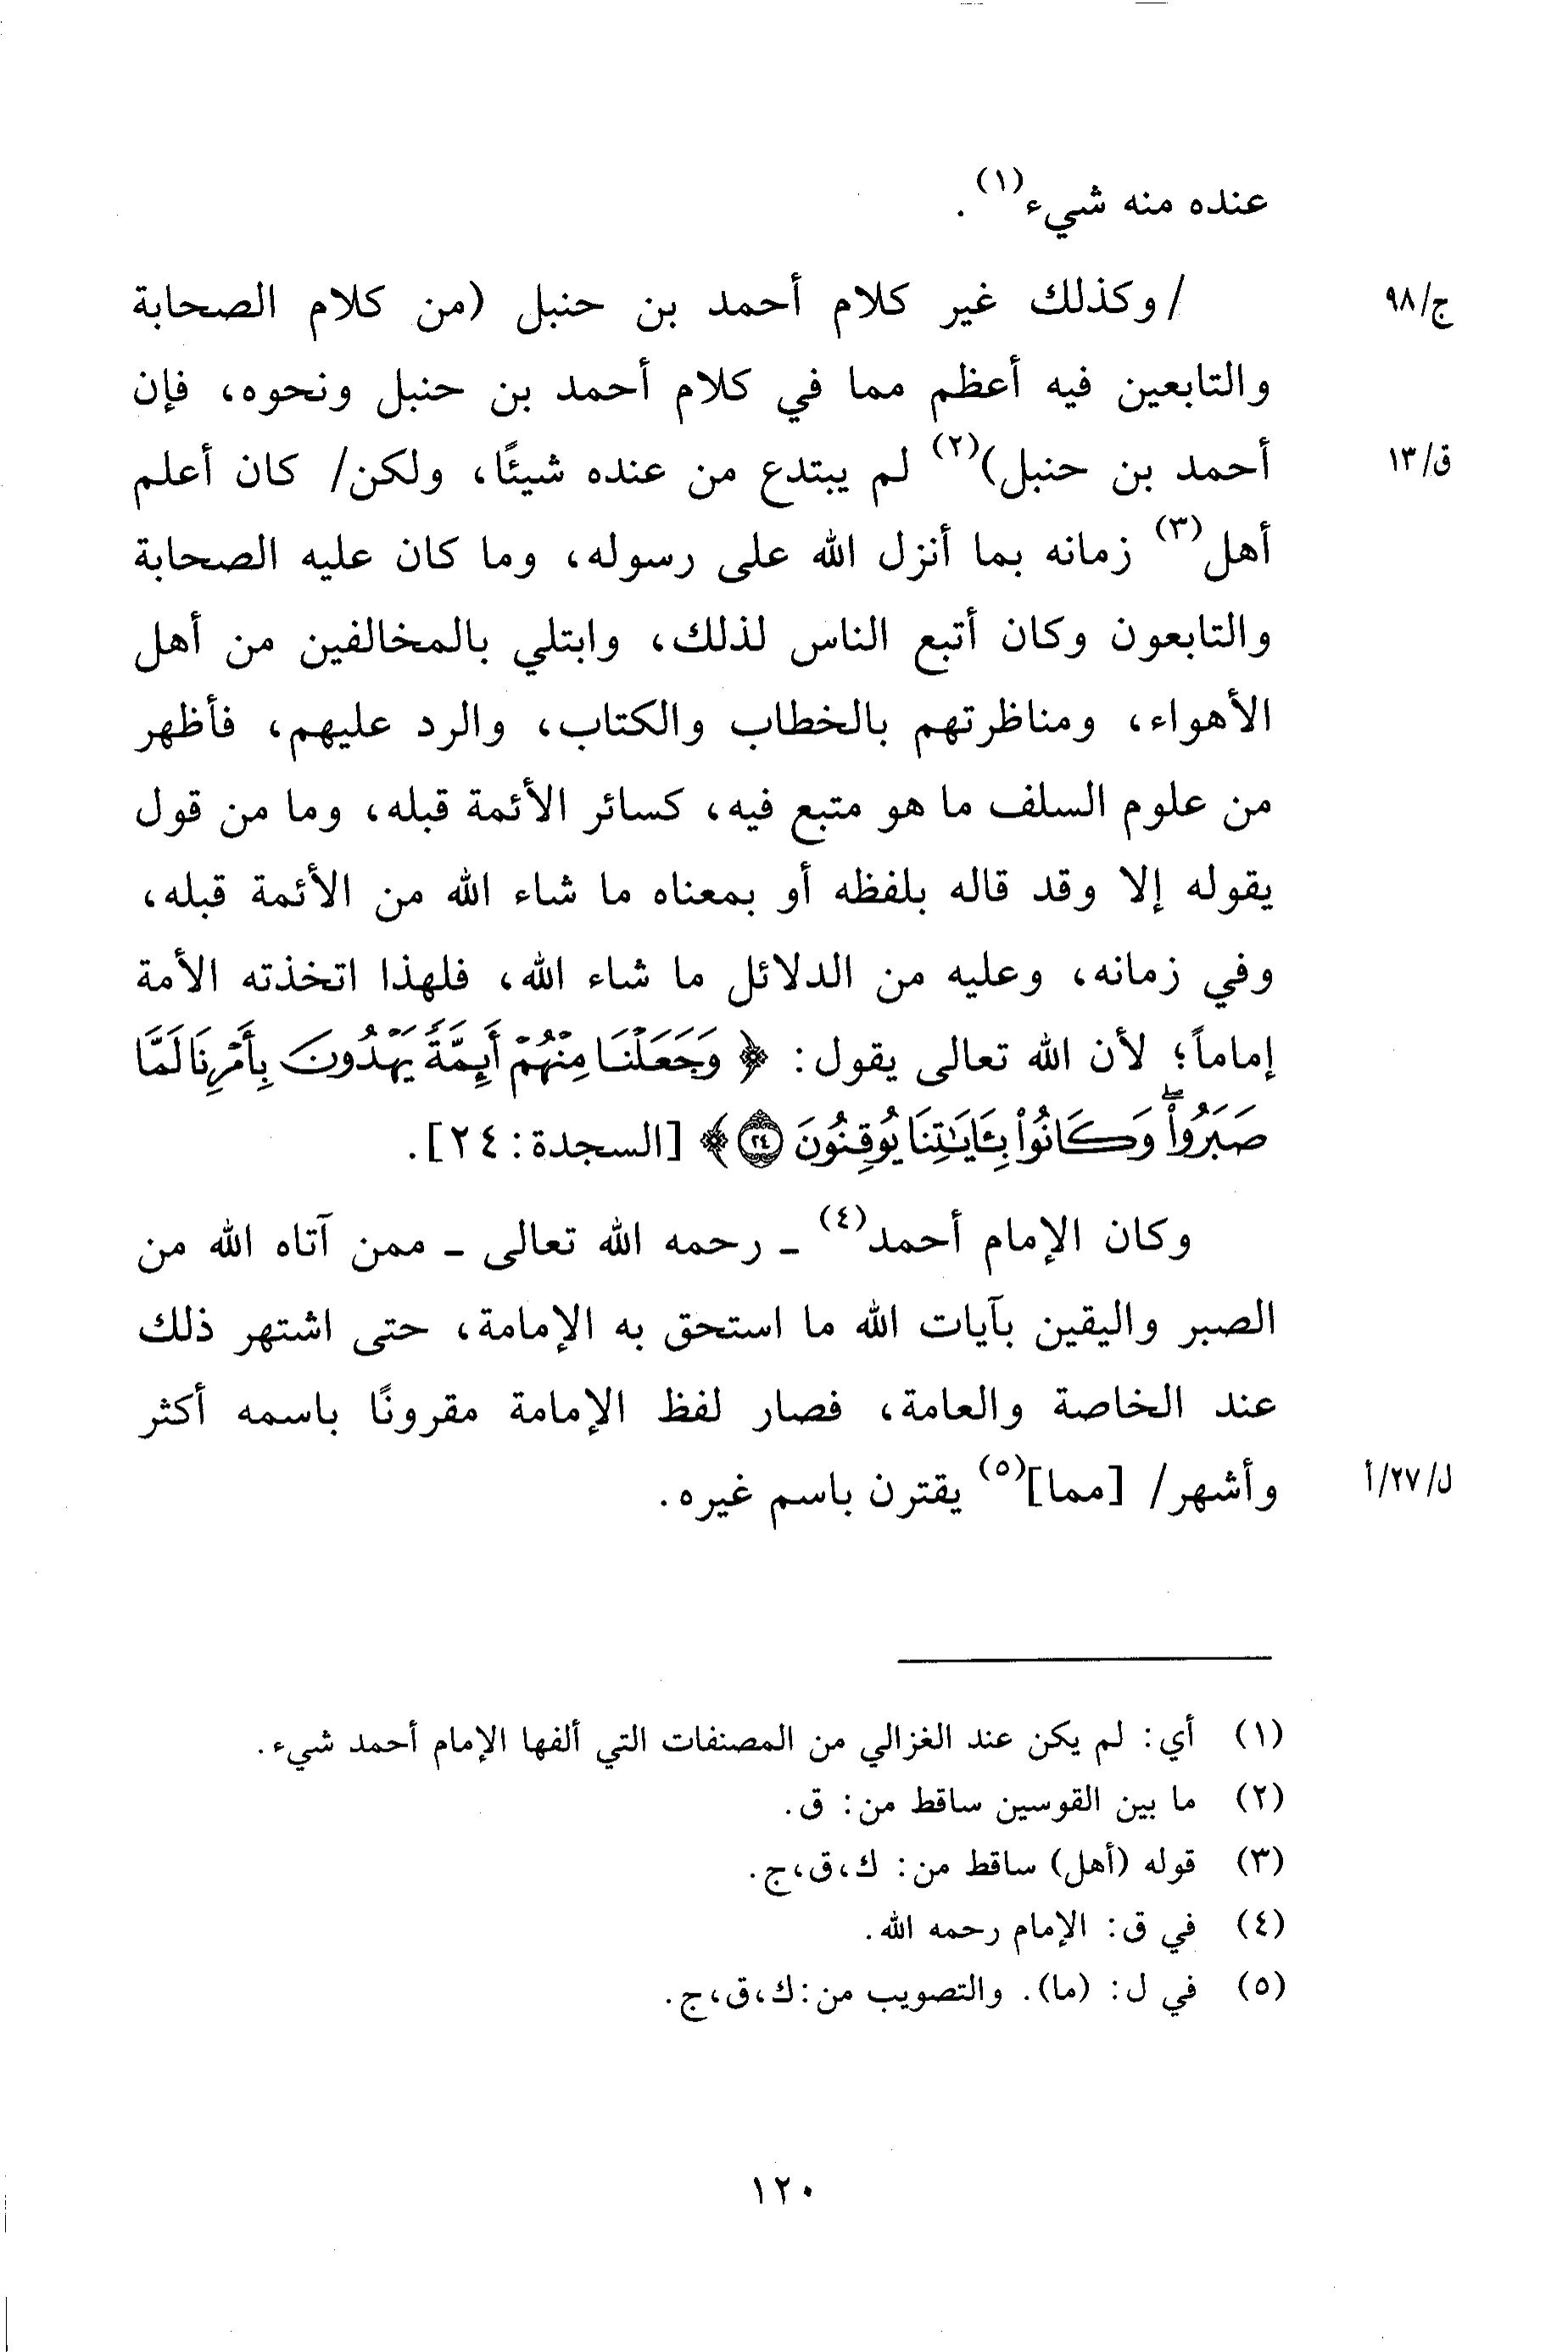 عنده منه شيء(١).
ج/٩٨
/ وكذلك غير كلام أحمد بن حنبل (من كلام الصحابة
والتابعين فيه أعظم مما في كلام أحمد بن حنبل ونحوه، فإن
ق/١٣
أحمد بن حنبل)(٢) لم يبتدع من عنده شيئًا، ولكن/ كان أعلم
أهل(٣) زمانه بما أنزل الله على رسوله، وما كان عليه الصحابة
والتابعون وكان أتبع الناس لذلك، وابتلي بالمخالفين من أهل
الأهواء، ومناظرتهم بالخطاب والكتاب، والرد عليهم، فأظهر
من علوم السلف ما هو متبع فيه، كسائر الأئمة قبله، وما من قول
يقوله إلا وقد قاله بلفظه أو بمعناه ما شاء الله من الأئمة قبله،
وفي زمانه، وعليه من الدلائل ما شاء الله، فلهذا اتخذته الأمة
إماماً؛ لأن الله تعالى يقول: ﴿ وَجَعَلْنَا مِنْهُمْ أَئِمَّةً يَهْدُونَ بِأَمْرِنَا لَمَّا
صَبَرُواْۖ وَكَانُواْ بِـَٔايَٰتِنَا يُوقِنُونَ ٢٤ ﴾ [السجدة: ٢٤].
وكان الإمام أحمد(٤) ـ رحمه الله تعالى ـ ممن آتاه الله من
الصبر واليقين بآيات الله ما استحق به الإمامة، حتى اشتهر ذلك
عند الخاصة والعامة، فصار لفظ الإمامة مقرونًا باسمه أكثر
ل/٢٧/أ
وأشهر/ [مما](٥) يقترن باسم غيره.
(١) أي: لم يكن عند الغزالي من المصنفات التي ألفها الإمام أحمد شيء.
(٢) ما بين القوسين ساقط من: ق.
(٣) قوله (أهل) ساقط من: ك،ق،ج.
(٤) في ق: الإمام رحمه الله.
(٥) في ل: (ما). والتصويب من:ك،ق،ج.
١٢٠